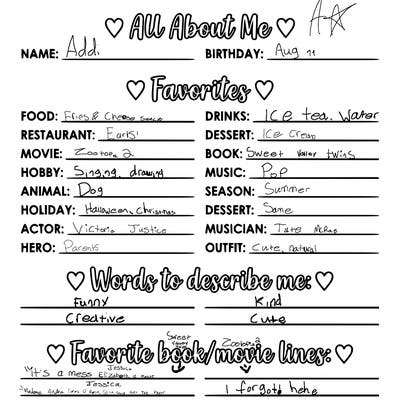 All About Me
A
NAME: Addi BIRTHDAY: Aug 11
Favorites
FOOD: Fries & Cheese sauce DRINKS: ICE tea. Water
RESTAURANT: Earls! DESSERT: Ice Cream
MOVIE: Zootopia 2 BOOK: Sweet Valley twins
HOBBY: Singing, drawing MUSIC: POP
ANIMAL: Dog SEASON: Summer
HOLIDAY: Halloween, Christmas DESSERT: Same
ACTOR: Victoria Justice MUSICIAN: Tate McRae
HERO: Parents OUTFIT: Cute, natural
Words to describe me:
Funny Kind
Creative Cute
Sweet Zootopia 2
Favorite book/movie lines:
Jessica
"It's a mess Elizabeth
Jessica
I forgot hehe